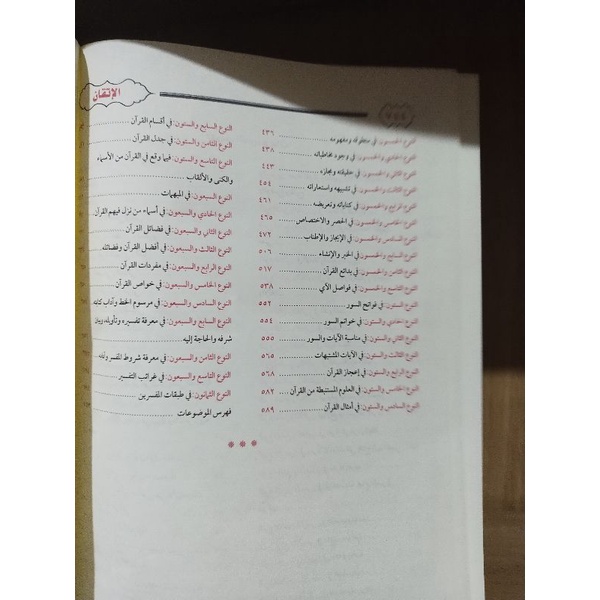 الإتقان
النوع الخمسون: في منطوقه ومفهومه ٤٣٦
النوع الحادي والخمسون: في وجوه مخاطباته ٤٣٨
النوع الثاني والخمسون: في حقيقته ومجازه ٤٤٣
النوع الثالث والخمسون: في تشبيهه واستعاراته ٤٥٤
النوع الرابع والخمسون: في كناياته وتعريضه ٤٦١
النوع الخامس والخمسون: في الحصر والاختصاص ٤٦٥
النوع السادس والخمسون: في الإيجاز والإطناب ٤٧٢
النوع السابع والخمسون: في الخبر والإنشاء ٥٠٦
النوع الثامن والخمسون: في بدائع القرآن ٥١٧
النوع التاسع والخمسون: في فواصل الآي ٥٣٨
النوع الستون: في فواتح السور ٥٥٢
النوع الحادي والستون: في خواتم السور ٥٥٤
النوع الثاني والستون: في مناسبة الآيات والسور ٥٥٥
النوع الثالث والستون: في الآيات المشتبهات ٥٦٥
النوع الرابع والستون: في إعجاز القرآن ٥٦٨
النوع الخامس والستون: في العلوم المستنبطة من القرآن ٥٨٢
النوع السادس والستون: في أمثال القرآن ٥٨٩
النوع السابع والستون: في أقسام القرآن
النوع الثامن والستون: في جدل القرآن
النوع التاسع والستون: فيما وقع في القرآن من الأسماء
والكنى والألقاب
النوع السبعون: في المبهمات
النوع الحادي والسبعون: في أسماء من نزل فيهم القرآن
النوع الثاني والسبعون: في فضائل القرآن
النوع الثالث والسبعون: في أفضل القرآن وفضائله
النوع الرابع والسبعون: في مفردات القرآن
النوع الخامس والسبعون: في خواص القرآن
النوع السادس والسبعون: في مرسوم الخط وآداب كتابته
النوع السابع والسبعون: في معرفة تفسيره وتأويله، وبيان
شرفه والحاجة إليه
النوع الثامن والسبعون: في معرفة شروط المفسر وآدابه
النوع التاسع والسبعون: في غرائب التفسير
النوع الثمانون: في طبقات المفسرين
فهرس الموضوعات